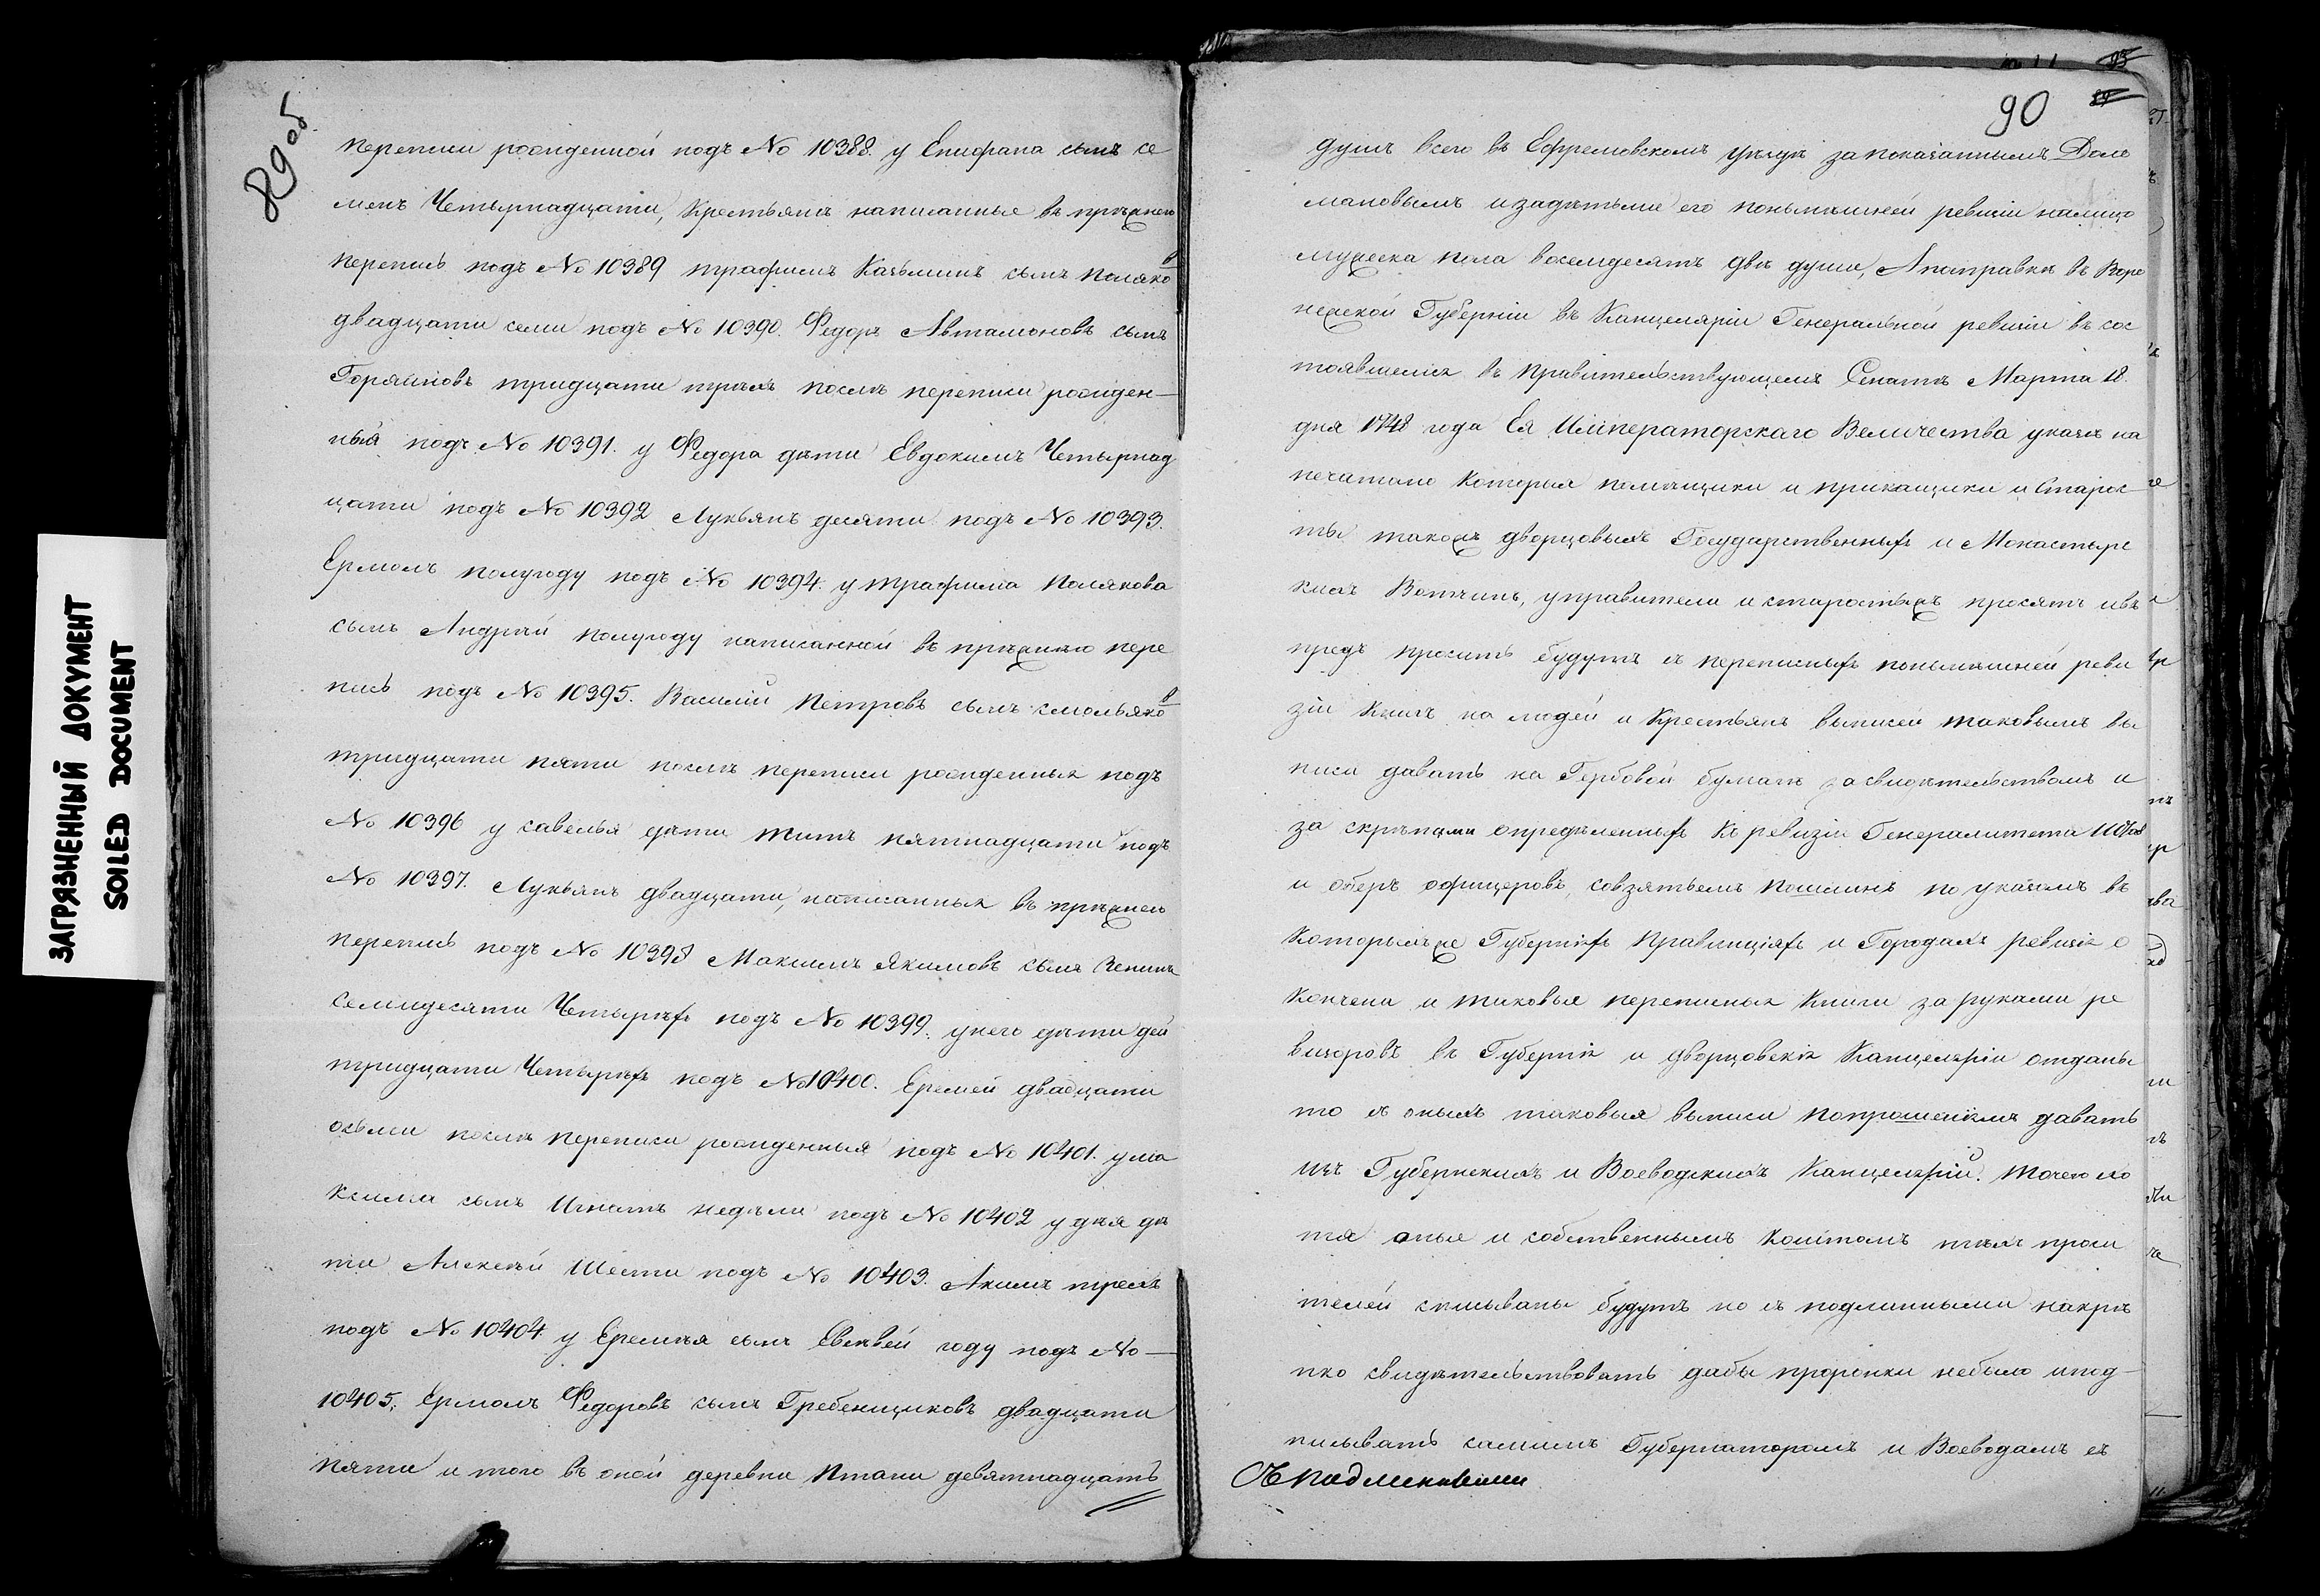 89 об
переписи рожденной подъ № 10388. у Епифана сынъ се
менъ Четырнадцати, крестьянъ написанные въ прежнею
перепись подъ № 10389 трафимъ Казьминъ сынъ Поляковъ
двадцати семи подъ № 10390. Федоръ Автамоновъ сынъ
Горяиновъ тридцати трехъ послѣ переписи рожден-
ныя подъ № 10391. у Федора дѣти Евдокимъ Четырнад
цати подъ № 10392 Лукьянъ десяти подъ № 10393.
Ермолъ полугоду подъ № 10394. у трафима Полякова
сынъ Андрѣй полугоду написанной въ прѣжнюю пере
пись подъ № 10395. Василій Петровъ сынъ смольяковъ
тридцати пяти послѣ переписи рожденныя подъ
№ 10396 у савелья дѣти титъ пятнадцати подъ
№ 10397. Лукьянъ двадцати, написанныя въ прѣжнею
перепись подъ № 10398 Максимъ Якимовъ сынъ Зенинъ
семидесяти Четырехъ подъ № 10399. унего дѣти дей
тридцати Четырехъ подъ № 10400. Еремей двадцати
осьми послѣ переписи рожденныя подъ № 10401. ума
ксима сынъ Игнатъ недѣли подъ № 10402 у дея дѣ
ти Алексѣй Шести подъ № 10403. Акимъ трехъ
подъ № 10404 у Еремѣя сынъ Евсѣвей году подъ №—
10405, Ермолъ Федоровъ сынъ Гребенщиковъ двадцати
пяти и того въ оной деревни Птани девятнадцать
90
душъ всего въ Ефремовскомъ уѣздѣ запоказаннымъ Доло
мановымъ изадѣтьми его понынѣшней ревизіи налицо
мужеска пола восемдесятъ двѣ души, Апоправки въ Воро
нежской Губерніи въ Канцеляріи Генеральной ревизіи въ сос
тоявшемся въ правительствующемъ Сенатѣ Марта 18.
дня 1748 года Ея Императорскаго Величества указѣ на
печатано которыя помѣщики и прикащики и Старос
ты такожъ дворцовыхъ Государственныхъ и Монастырс
кихъ Вотчинъ, управители и старостыжъ просятъ ивъ
предъ просить будутъ съ переписныхъ понынѣшней реви
зіи Книгъ на людей и Крестьянъ выписей таковымъ вы
писи давать на Гербовой бумагѣ засвидѣтельствомъ и
за скрѣпами опредѣленныхъ къ ревизіи Генералитета Штабъ
и оберъ офицеровъ, совзятьемъ пошлинъ по указамъ въ
которыхъже Губерніяхъ правинціяхъ и Городахъ ревизія о
кончена и таковыя переписныя Книги за руками ре
визоровъ въ Губерніи и дворцовскія Канцеляріи отданы
то съ оныхъ таковыя выписи попрошеніямъ давать
изъ Губернскихъ и Воеводскихъ Канцелярій. точею хо
тя оныя и собственнымъ коштомъ тѣхъ проси
телей списываны будутъ но съ подлинными накрѣ
пко свидѣтельствовать дабы проронки небыло ипод-
писывать самимъ Губернаторамъ и Воеводамъ съ
Съ подлинными
ЗАГРЯЗНЕННЫЙ ДОКУМЕНТ
SOILED DOCUMENT